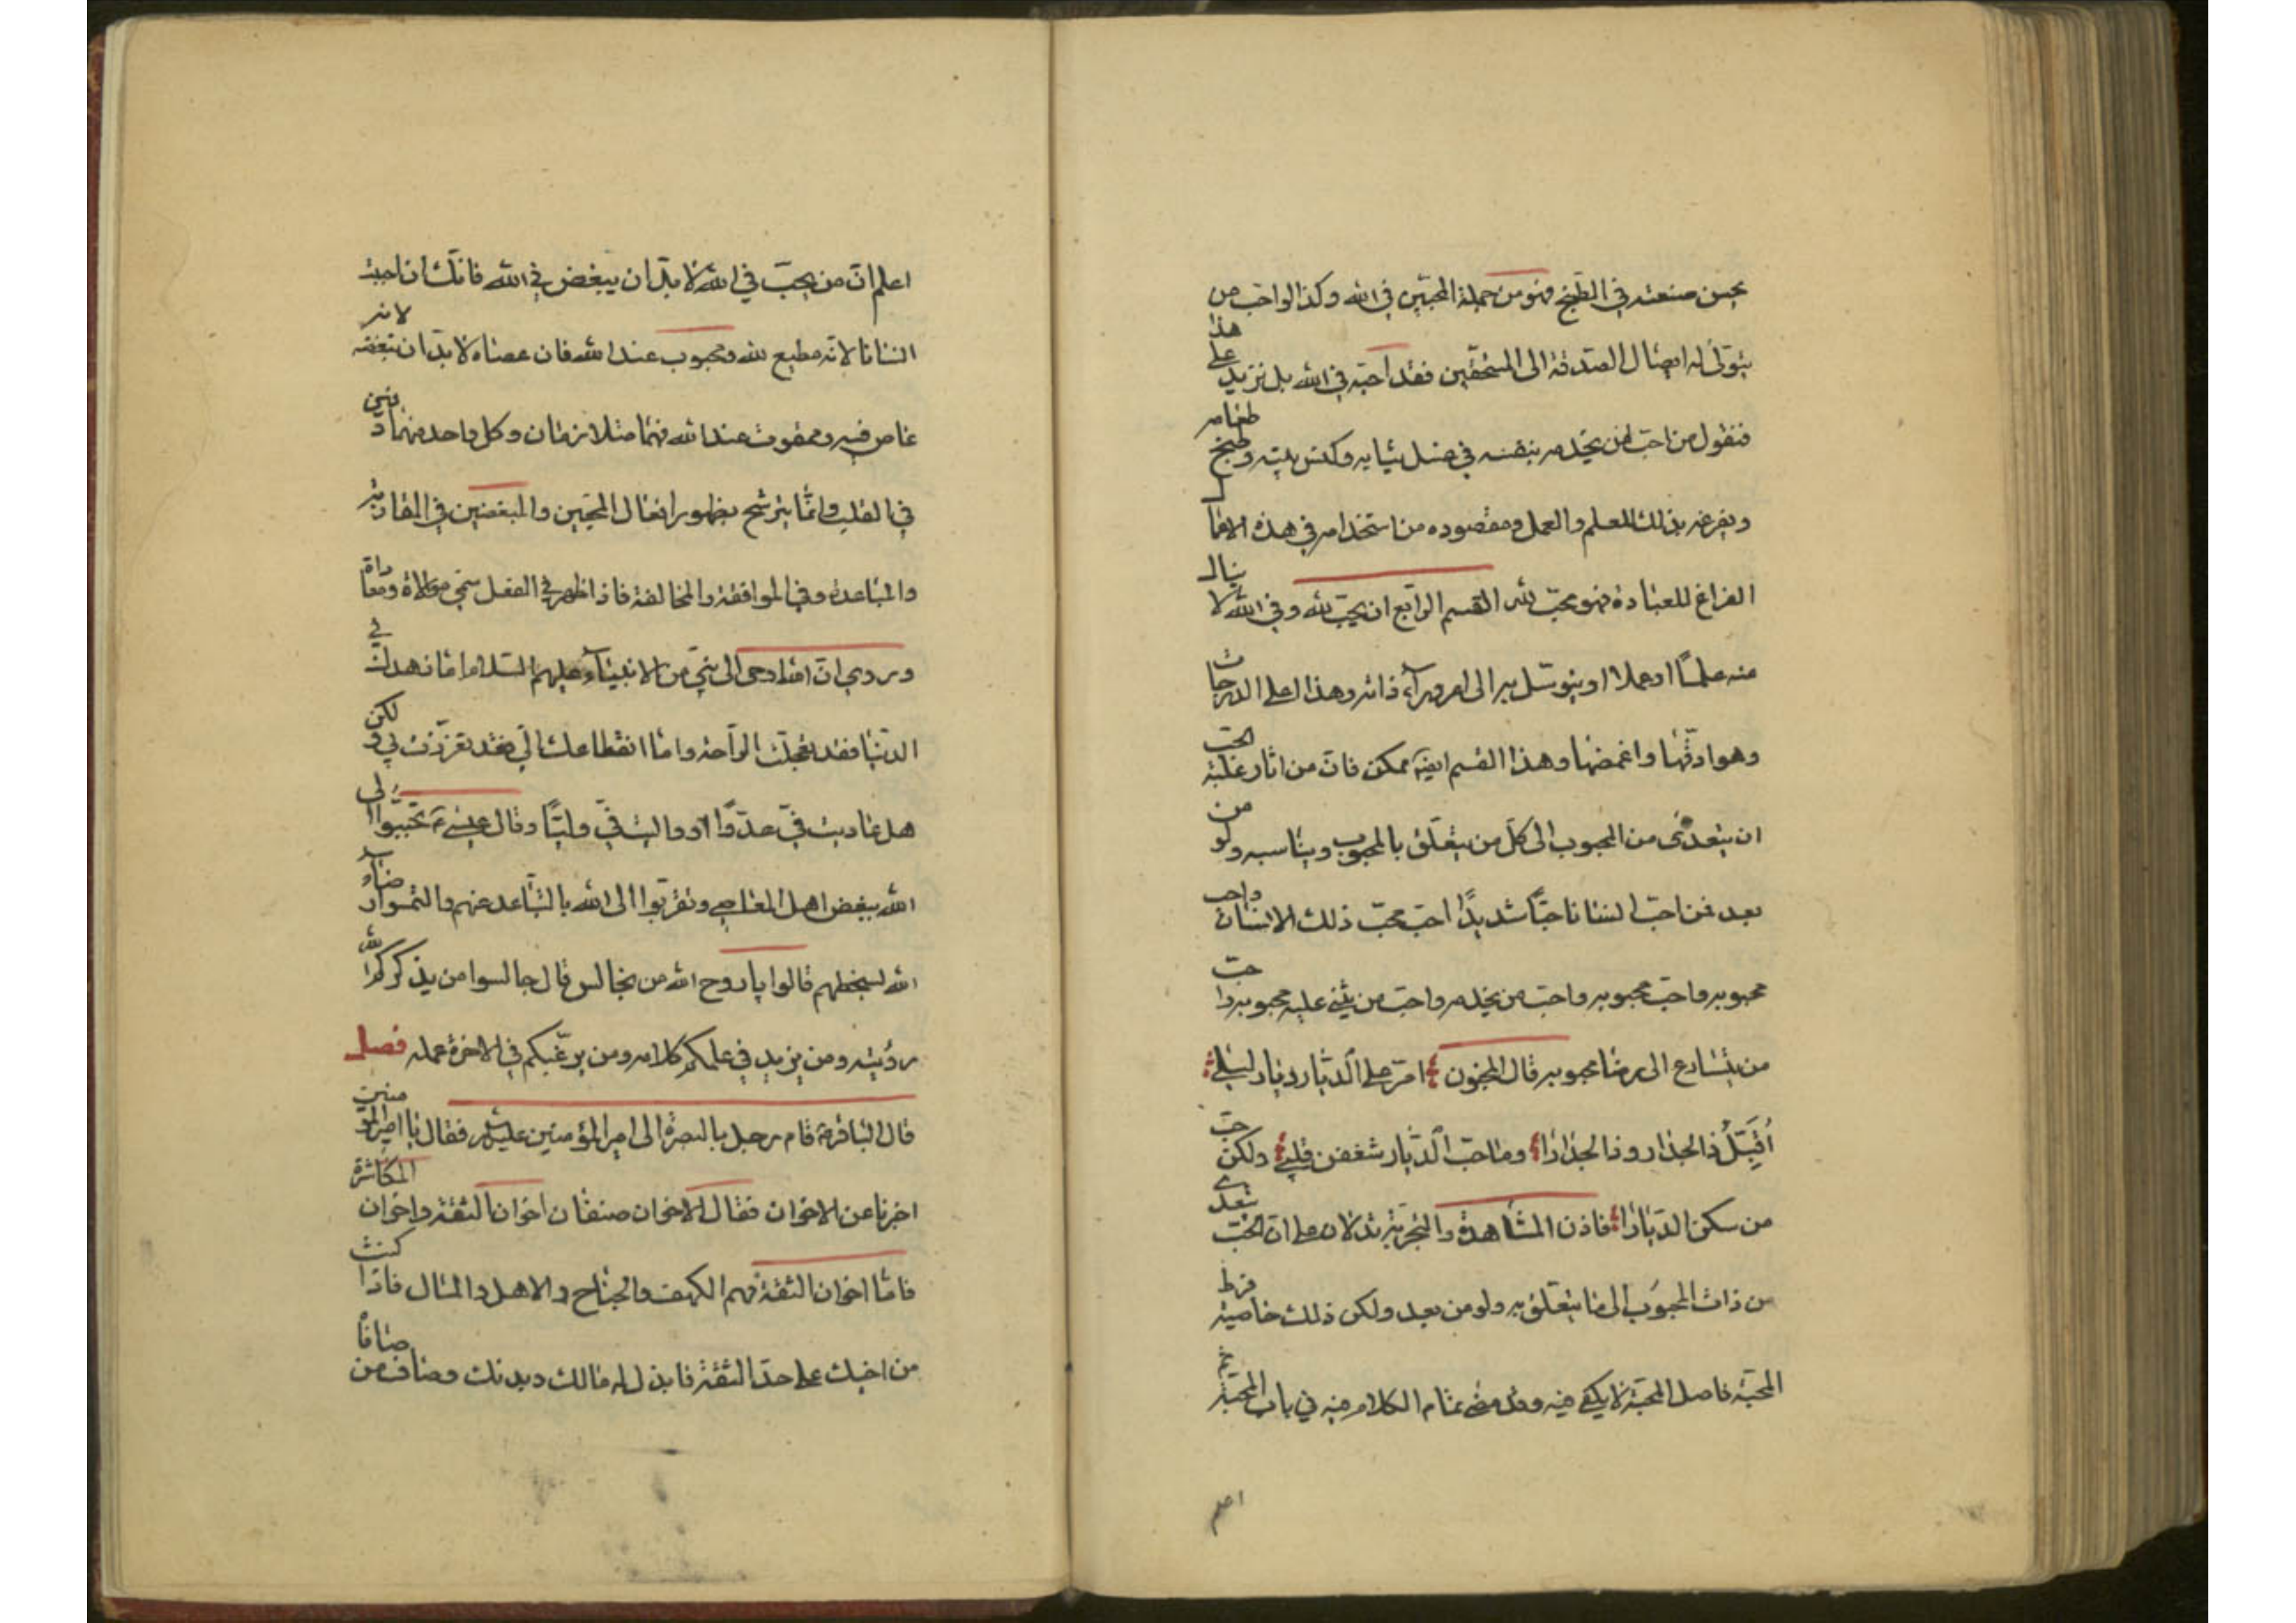 يحسن صنعته في الطبخ فهو من جملة المحبّين في الله وكذا لو احبّ من
يتولّى له ايصال الصدقة الى المستحقّين فقد احبّه في الله بل نزيد على هذا
فنقول من احبّ من يخدمه بنفسه في غسل ثيابه وكنس بيته وطبخ طعامه
ويفرغه بذلك للعلم والعمل ومقصوده من استخدامه في هذه الافعال
الفراغ للعبادة فهو محبّ لله القسم الرابع ان يحبّ لله وفي الله لا ينال
منه علمًا او عملا او يتوسّل به الى امر ورآء ذاته وهذا اعلى الدرجات
وهو ادقّها واغمضها وهذا القسم ايضا ممكن فانّ من اثار غلبة الحبّ
ان يتعدّى من المحبوب الى كلّ من يتعلّق بالمحبوب ويناسبه ولو من
بعد فمن احبّ انسانا حبّا شديدًا احبّ محبّ ذلك الانسان واحب
محبوبه واحبّ محبوبه واحبّ من يخدمه واحبّ من يثني عليه محبوبه واحبّ
من يتسارع الى رضا محبوبه قال المجنون امرّ على الديار ديار ليلى
أُقَبِّلُ ذا الجدار وذا الجدارا وما حبّ الديار شغفن قلبي ولكن حبّ
من سكن الديارا فاذن المشاهدة والتجربة تدلان على انّ الحبّ يتعدى
من ذات المحبوب الى ما يتعلّق به ولو من بعد ولكن ذلك خاصية فرط
المحبّة فاصل المحبّة لا يكفي فيه وقد مضى تمام الكلام فيه في باب المحبّة ثم
اعلم
اعلم انّ من يحبّ في الله لا بدّ ان يبغض في الله فانّك ان احببت
انسانا لانّه مطيع لله ومحبوب عند الله فان عصاه لا بدّ ان تبغضه لانه
عاص فيه وممقوت عند الله فهما متلازمان وكل واحد منهما دفين
في القلب وانّما يترشح بظهور افعال المحبّين والمبغضين في المقاربة
والمباعدة وفي الموافقة والمخالفة فاذا ظهر في الفعل سمّي موالاة ومعاداة
وروي انّ الله اوحى الى نبيّ من الانبيآء عليهم السّلام امّا زهدك في
الدنيا فقد تعجلت الراحة وامّا انقطاعك الّي فقد تعززت بي ولكن
هل عاديت فيّ عدوًّا او واليت فيّ وليّا وقال عيسى ع تحبّبوا الى
الله ببغض اهل المعاصي وتقربوا الى الله بالتباعد عنهم والتمسوا رضاء
الله بسخطهم قالوا يا روح الله من نجالس قال جالسوا من يذكركم الله
رؤيته ومن يزيد في علمكم كلامه ومن يرغّبكم في الاخرة عمله فصل
قال الباقر ع قام رجل بالبصرة الى امير المؤمنين عليه السلام فقال يا امير المؤمنين
اخبرنا عن الاخوان فقال الاخوان صنفان اخوان الثقة واخوان المكاشرة
فامّا اخوان الثقة فهم الكهف والجناح والاهل والمال فاذا كنت
من اخيك على حدّ الثقة فابذل له مالك وبدنك وصاف من صافاه